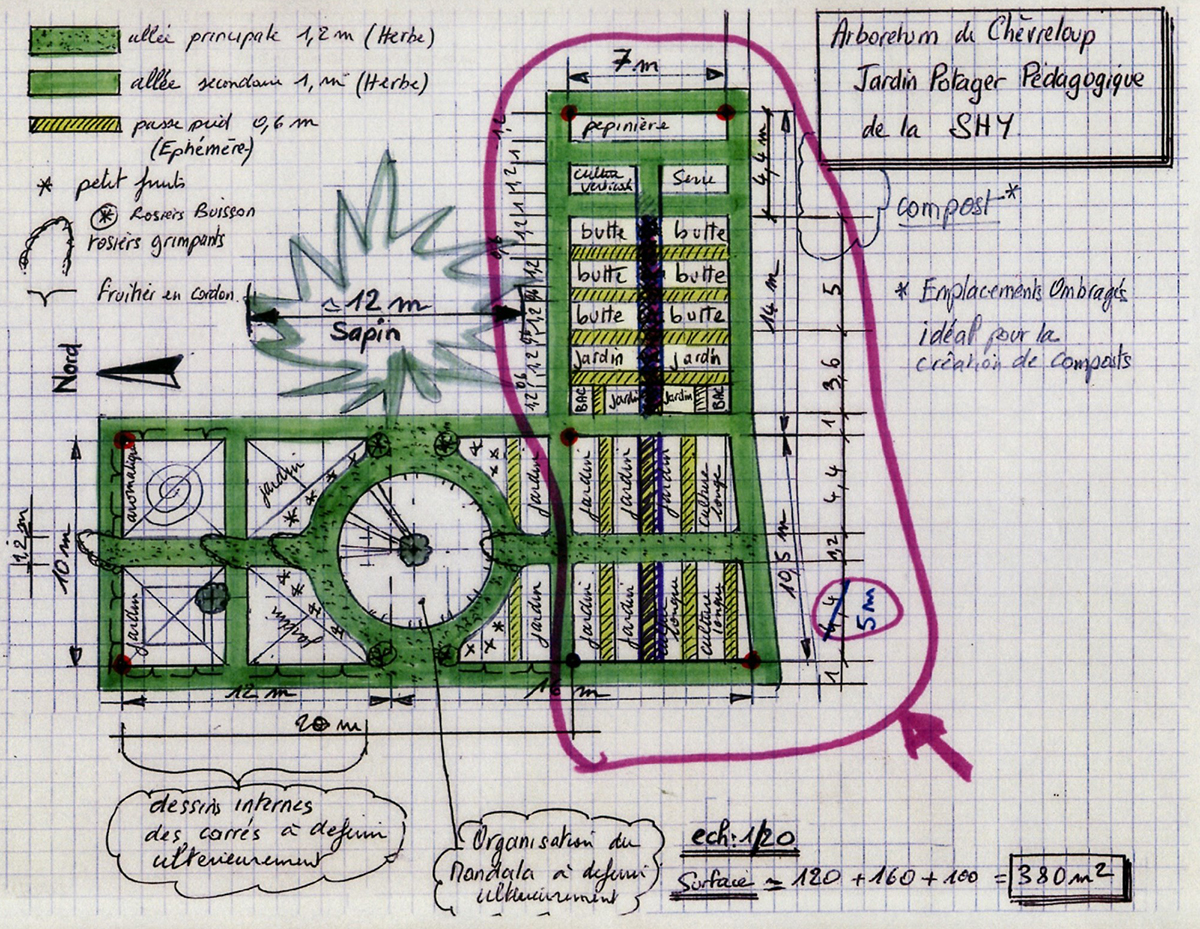 allée principale 1,2 m (Herbe)
allée secondaire 1, m (Herbe)
passe pied 0,6 m
(Ephémère)
* petit fruits
Rosiers Buisson
rosiers grimpants
fruitier en cordon
Arboretum de Chèvreloup
Jardin Potager Pédagogique
de la SHY
compost *
* Emplacements Ombragés
idéal pour la
création de composts
7 m
pepinière
Serre
butte butte
butte butte
butte butte
jardin jardin
BAC jardin jardin BAC
4,4 m
14 m
5
3,6
1
4,4
1,2
10,5 m
4,4
5 m
1
≃ 12 m
Sapin
Nord
aromatique
jardin
jardin
jardin
jardin
jardin
jardin
jardin
culture
longue
jardin
jardin
jardin
culture
longue
culture
longue
10 m
12 m
16 m
20 m
dessins internes
des carrés à definir
ulterieurement
Organisation du
Mandala à definir
ulterieurement
ech: 1/20
Surface ≃ 120 + 160 + 100 = 380 m²